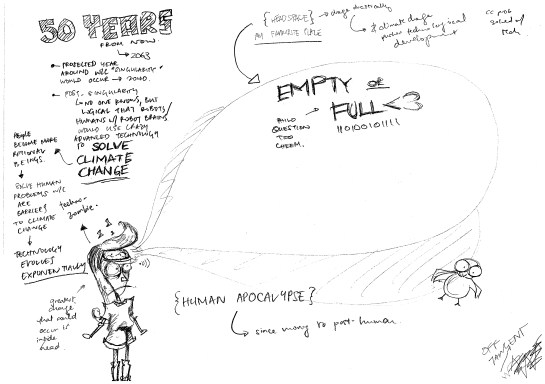 50 YEARS
FROM NOW.
→ 2063
• PROJECTED YEAR
AROUND w/c "SINGULARITY"
WOULD OCCUR → 2040.
• POST-SINGULARITY
↳ NO ONE KNOWS, BUT
LOGICAL THAT ROBOTS/
HUMANS w/ ROBOT BRAINS
WOULD USE CRAZY
ADVANCED TECHNOLOGY
TO SOLVE
CLIMATE
CHANGE
PEOPLE
BECOME MORE
RATIONAL
BEINGS.
SOLVE HUMAN
PROBLEMS w/c
ARE
BARRIERS
TO CLIMATE
CHANGE
TECHNOLOGY
EVOLVES
EXPONENTIALLY
techno-
zombie.
greatest
change
that could
occur is
inside
head.
{HEADSPACE} → change drastically
MY FAVOURITE PLACE
↳ climate change
pushes technological
development
EMPTY OR
FULL <3
11010010111
PHILO
QUESTION
TOO
CHEEM.
{HUMAN APOCALYPSE}
↳ since moving to post-human.
OFF
TANGENT